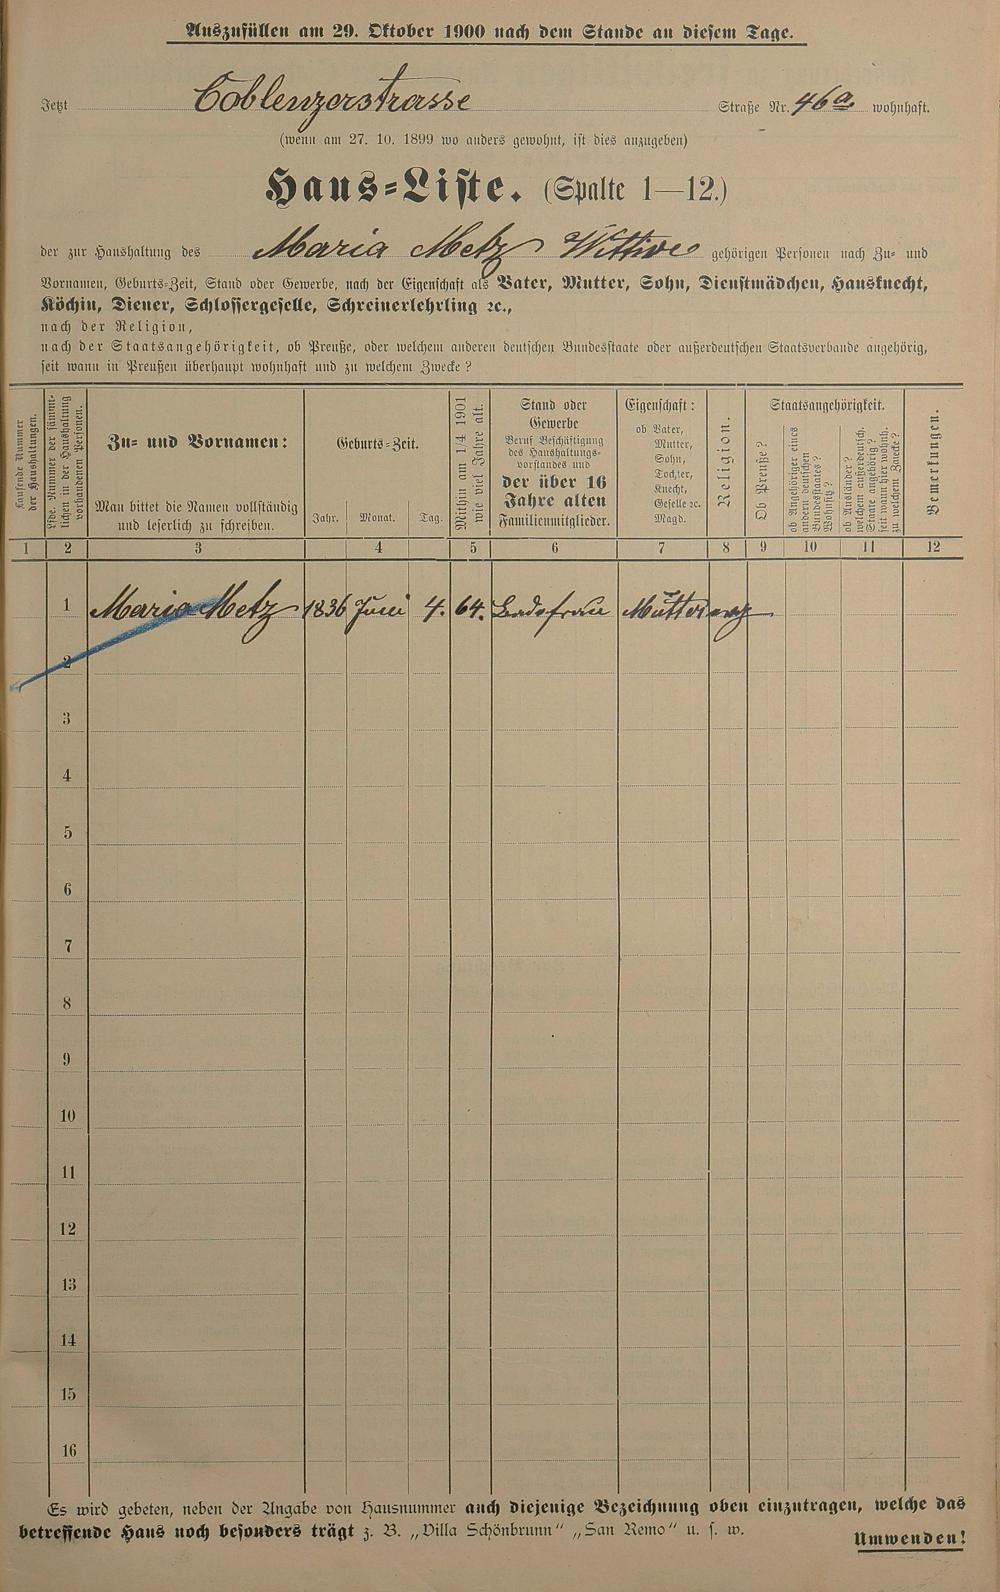 Auszufüllen am 29. Oktober 1900 nach dem Stande an diesem Tage.
Jetzt Coblenzerstrasse Straße Nr. 46a wohnhaft.
(wenn am 27. 10. 1899 wo anders gewohnt, ist dies anzugeben)
Haus=Liste. (Spalte 1—12.)
der zur Haushaltung des Maria Metz Wittwe gehörigen Personen nach Zu= und
Vornamen, Geburts=Zeit, Stand oder Gewerbe, nach der Eigenschaft als Vater, Mutter, Sohn, Dienstmädchen, Hausknecht,
Köchin, Diener, Schlossergeselle, Schreinerlehrling ꝛc.,
nach der Religion,
nach der Staatsangehörigkeit, ob Preuße, oder welchem anderen deutschen Bundesstaate oder außerdeutschen Staatsverbande angehörig,
seit wann in Preußen überhaupt wohnhaft und zu welchem Zwecke?
Laufende Nummer
der Haushaltungen.
Lfde. Nummer der sämmt=
lichen in der Haushaltung
vorhandenen Personen.
Zu= und Vornamen:
Man bittet die Namen vollständig
und leserlich zu schreiben.
Geburts=Zeit.
Jahr. Monat. Tag.
Mithin am 1/4 1901
wie viel Jahre alt.
Stand oder
Gewerbe
Beruf Beschäftigung
des Haushaltungs=
vorstandes und
der über 16
Jahre alten
Familienmitglieder.
Eigenschaft:
ob Vater,
Mutter,
Sohn,
Tochter,
Knecht,
Geselle ꝛc.
Magd.
Religion.
Staatsangehörigkeit.
Ob Preuße?
ob Angehöriger eines
andern deutschen
Bundesstaates?
Wohnsitz?
ob Ausländer?
welchem außerdeutsch.
Staate angehörig?
seit wann hier wohnh.
zu welchem Zwecke?
Bemerkungen.
1 2 3 4 5 6 7 8 9 10 11 12
1 Maria Metz 1836 Juni 4. 64. Badefrau Mutter evg
2
3
4
5
6
7
8
9
10
11
12
13
14
15
16
Es wird gebeten, neben der Angabe von Hausnummer auch diejenige Bezeichnung oben einzutragen, welche das
betreffende Haus noch besonders trägt z. B. „Villa Schönbrunn“ „San Remo“ u. s. w.
Umwenden!